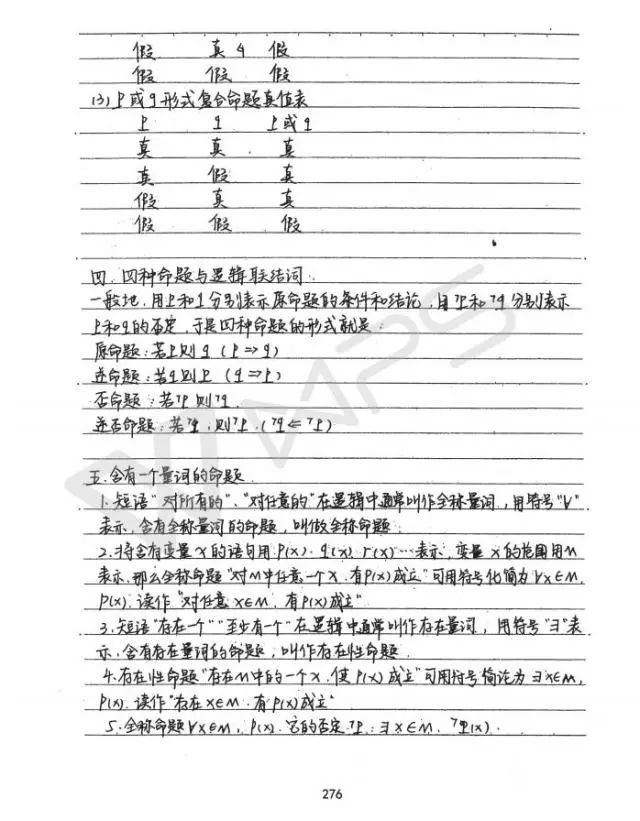 假 真 假
假 假 假
(3) p或q形式复合命题真值表
p q p或q
真 真 真
真 假 真
假 真 真
假 假 假
四. 四种命题与逻辑联结词.
一般地,用p和q分别表示原命题的条件和结论,用┐p和┐q分别表示
p和q的否定,于是四种命题的形式就是:
原命题:若p则q (p⇒q)
逆命题:若q则p (q⇒p)
否命题:若┐p则┐q.
逆否命题:若┐q,则┐p.(┐q⇐┐p)
五.含有一个量词的命题
1.短语"对所有的"、"对任意的"在逻辑中通常叫作全称量词,用符号"∀"
表示,含有全称量词的命题,叫做全称命题.
2.将含有变量x的语句用P(x).q(x).r(x)…表示,变量x的范围用M
表示,那么全称命题"对M中任意一个x,有P(x)成立"可用符号化简为∀x∈M,
P(x).读作"对任意x∈M,有P(x)成立"
3.短语"存在一个""至少有一个"在逻辑中通常叫作存在量词,用符号"∃"表
示,含有存在量词的命题,叫作存在性命题.
4.存在性命题"存在M中的一个x,使P(x)成立"可用符号简论为∃x∈M,
P(x).读作"存在x∈M.有P(x)成立"
5.全称命题∀x∈M,P(x).它的否定┐p:∃x∈M,┐p(x).
276
VMPS